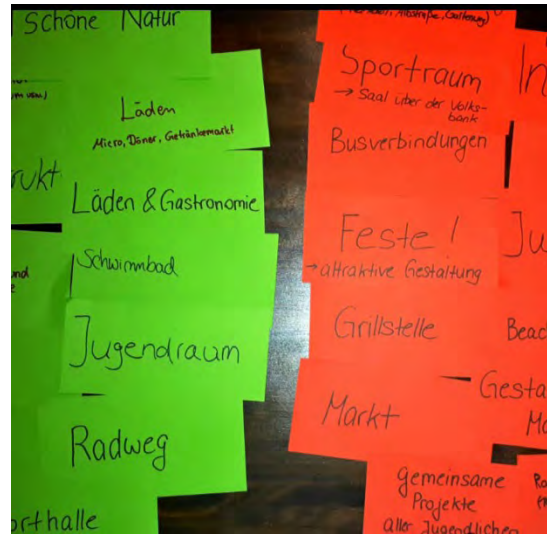 schöne Natur
Läden
Micro, Döner, Getränkemarkt
Läden & Gastronomie
Schwimmbad
und
Jugendraum
Radweg
orthalle
Sportraum
→ Saal über der Volks-
bank
Busverbindungen
Feste!
→ attraktive Gestaltung
Grillstelle
Markt
gemeinsame
Projekte
aller Jugendlichen
In
Ju
Beac
Gesta